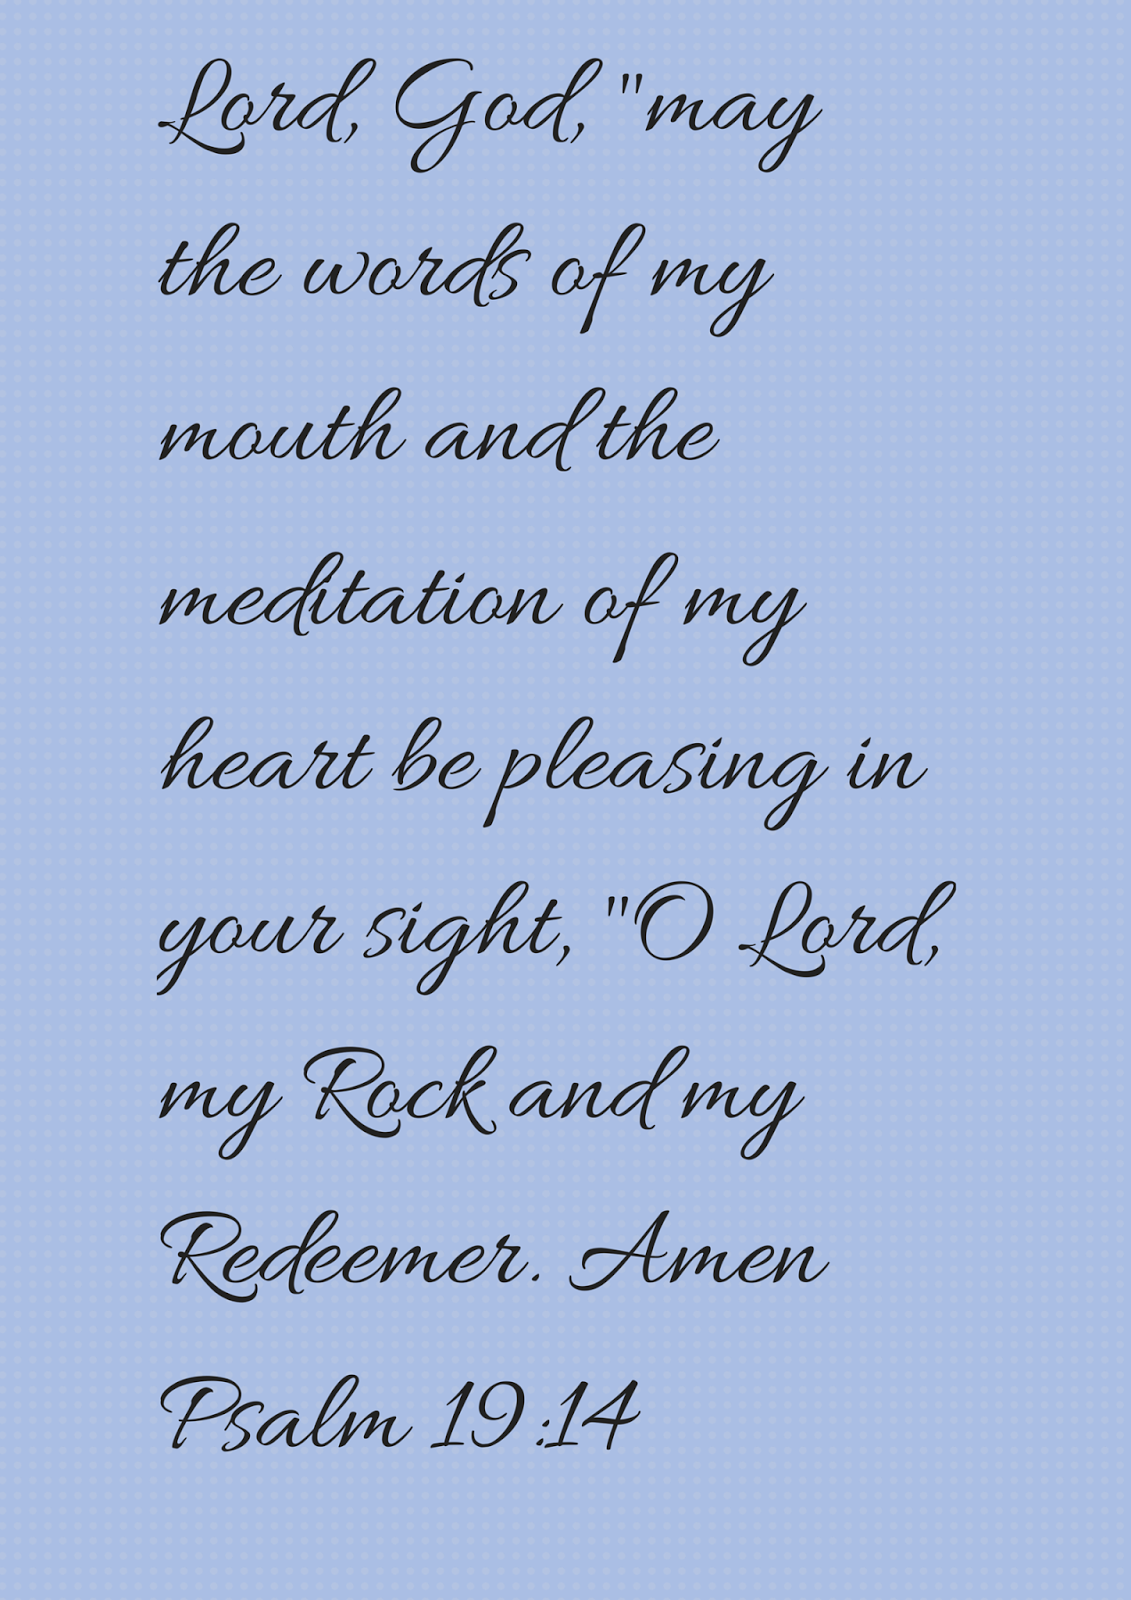 Lord, God, "may
the words of my
mouth and the
meditation of my
heart be pleasing in
your sight, "O Lord,
my Rock and my
Redeemer. Amen
Psalm 19:14